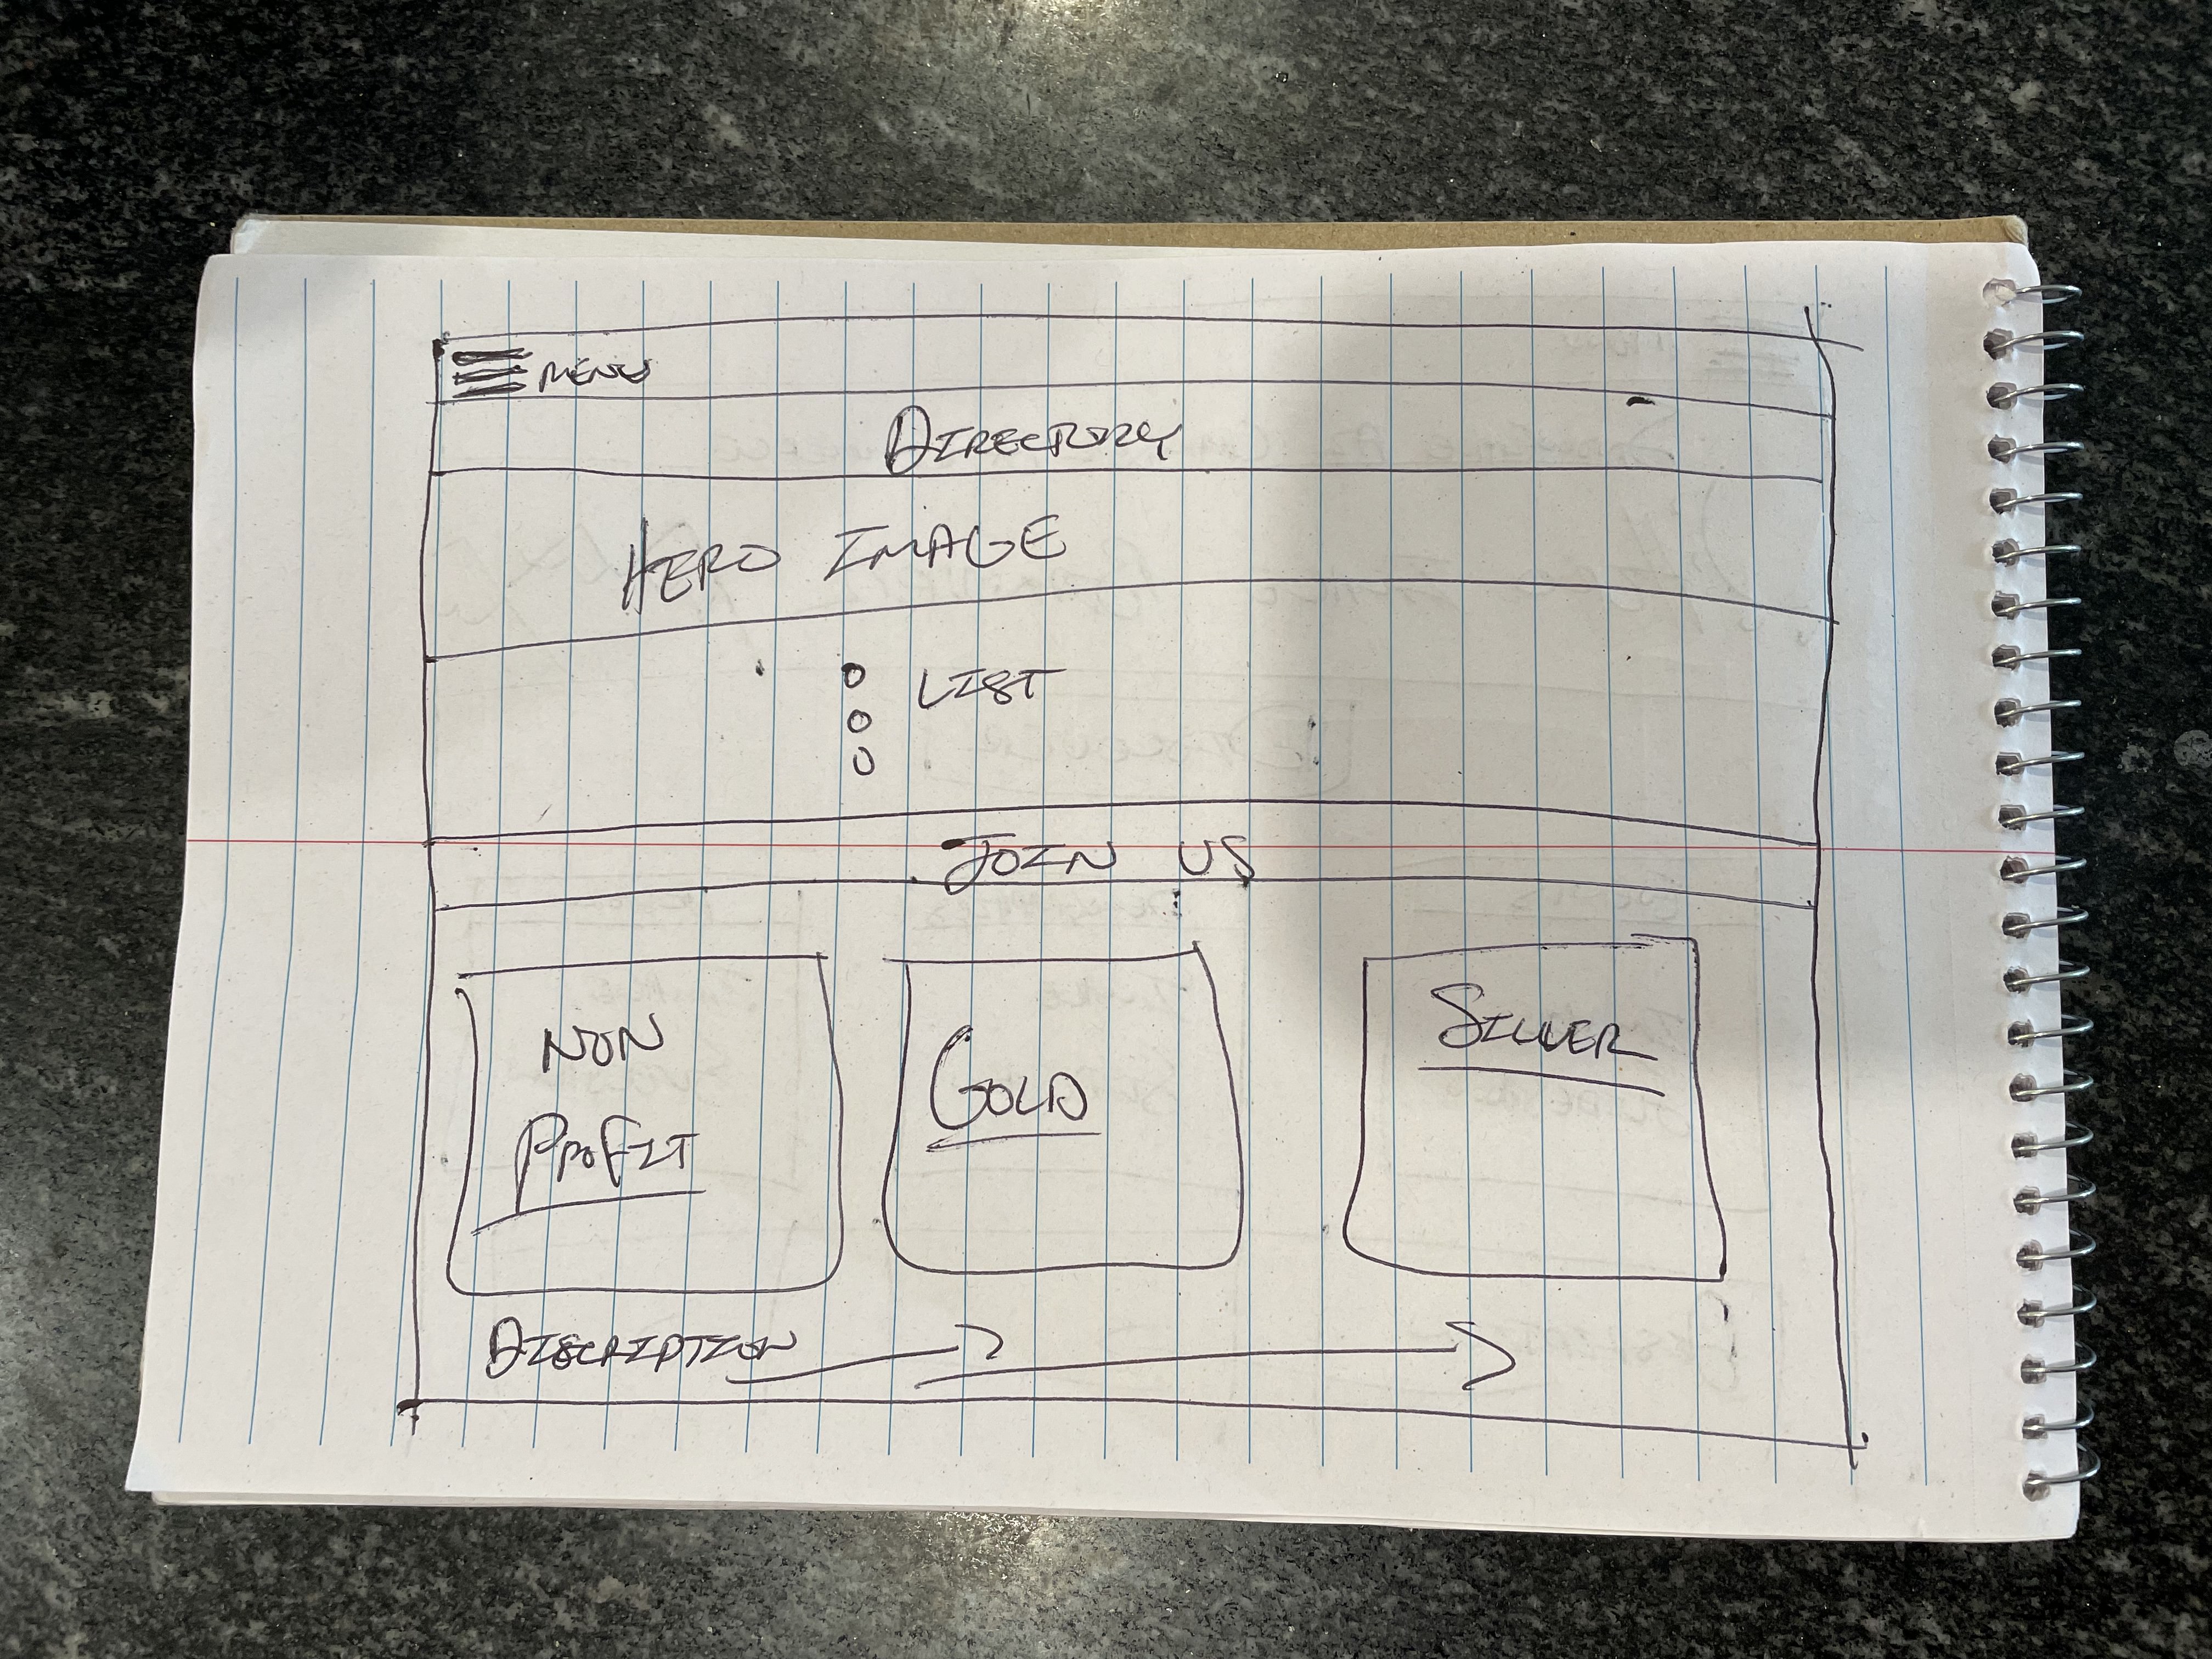 Menu
Directory
HERO IMAGE
LIST
JOIN US
NON
Profit
Gold
Silver